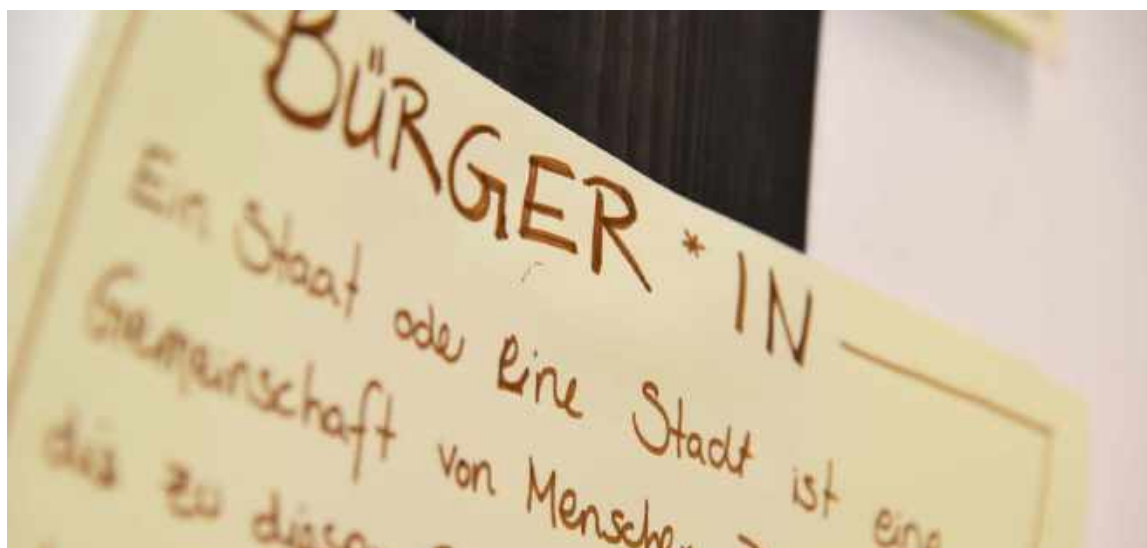 BÜRGER*IN
Ein Staat oder eine Stadt ist eine
Gemeinschaft von Menschen
die zu dieser